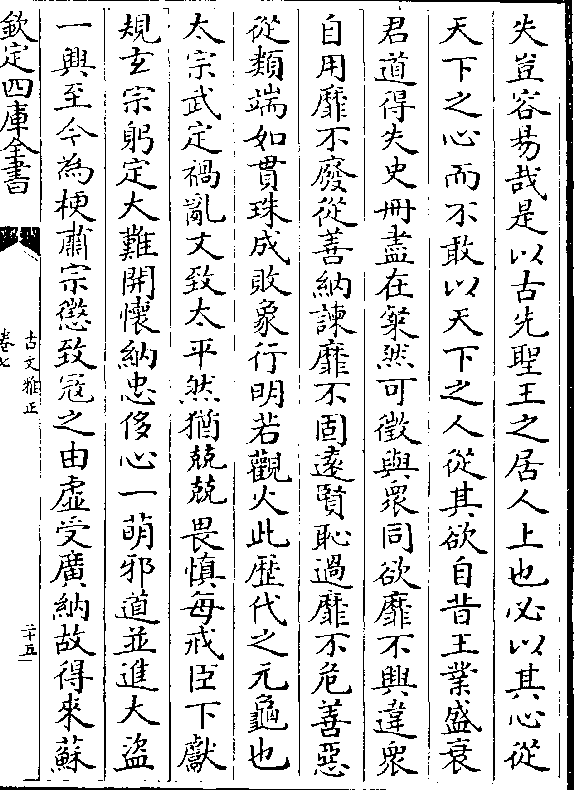 失豈容易哉是以古先聖王之居人上也必以其心從
天下之心而不敢以天下之人從其欲自昔王業盛衰
君道得失史冊盡在粲然可徵與衆同欲靡不興違衆
自用靡不廢從善納諫靡不固遠賢恥過靡不危善惡
從類端如貫珠成敗象行明若觀火此歴代之元龜也
太宗武定禍亂文致太平然猶兢兢畏慎每戒臣下獻
規玄宗躬定大難開懷納忠侈心一萌邪道並進大盜
一興至今為梗肅宗懲致冦之由虛受廣納故得來蘇
欽定四庫全書
古文雅正
卷七
二十五